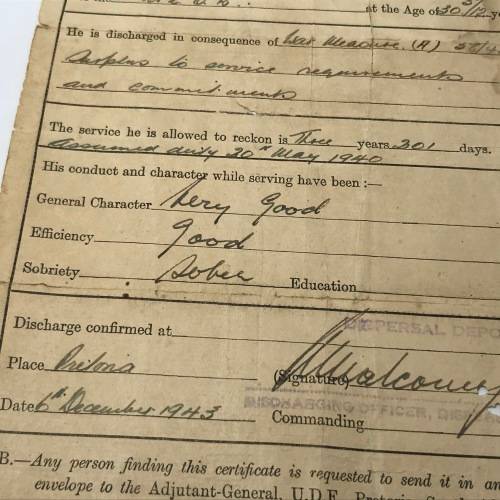 at the Age of 30
He is discharged in consequence of War Measure. (A)
Surplus to service requirements
and commitments
The service he is allowed to reckon is Three years 201 days.
assumed duty 20th May 1940
His conduct and character while serving have been :—
General Character Very Good
Efficiency Good
Sobriety Sober Education
Discharge confirmed at
DISPERSAL DEPO
Place Pretoria (Signature)
DISCHARGING OFFICER, DISP
Date 6th December 1943 Commanding
B.—Any person finding this certificate is requested to send it in an
envelope to the Adjutant-General, U.D.F., Pretoria